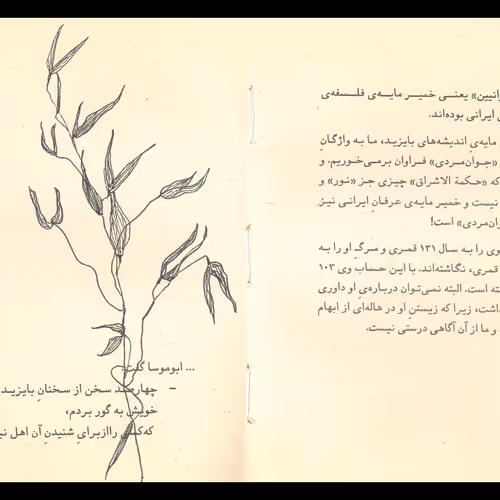 رانیین» یعنـی خمیـر مایـه‌ی فلـسفه‌ی
ایرانی بوده‌اند.
مایه‌ی اندیشه‌های بایزیـد، مـا بـه واژگـانِ
«جـوان‌مـردی» فـراوان برمـی‌خـوریم. و
که «حـکمة الاشراق» چیـزی جـز «نـور» و
نیست و خمیـر مایـه‌ی عرفـانِ ایرانـی نیـز
ان‌مردی» است!
وی را بـه سـال ۱۳۱ قمـری و مـرگِ او را بـه
قمری، نگاشته‌اند. با ایـن حساب وی ۱۰۳
ته است. البته نمی‌تـوان دربـاره‌یِ او داوری
داشت، زیـرا که زیستنِ او در هاله‌ای از ابهام
و ما از آن آگاهی درستی نیست.
... ابوموسا گفت:
– چهارصد سـخن از سـخنانِ بایزیـد
خویش به گور بـردم،
که‌کسی رااز‌برایِ شنیدنِ آن اهـل